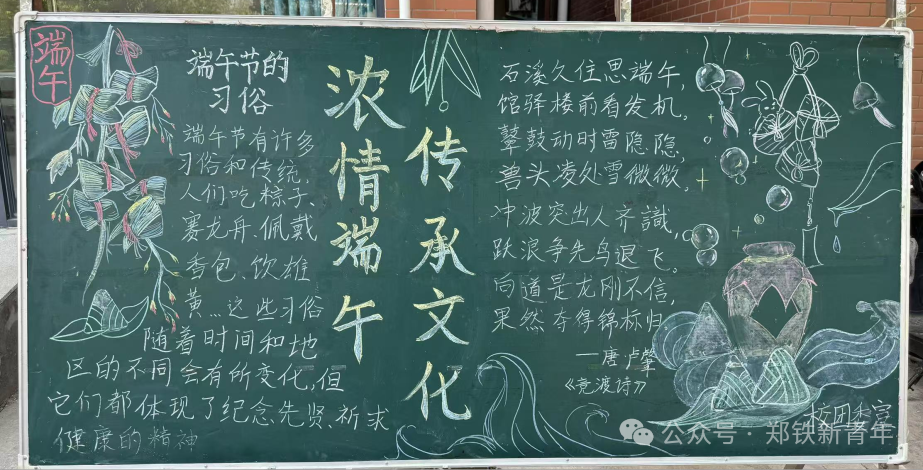 端午
端午节的
习俗
端午节有许多
习俗和传统,
人们吃粽子、
赛龙舟、佩戴
香包、饮雄
黄...这些习俗
随着时间和地
区的不同会有所变化,但
它们都体现了纪念先贤、祈求
健康的精神
浓情端午
传承文化
石溪久住思端午,
馆驿楼前看发机,
鼙鼓动时雷隐隐,
兽头凌处雪微微,
冲波突出人齐識,
跃浪争先鸟退飞。
向道是龙刚不信,
果然夺得锦标归
——唐·卢肇
《竞渡诗》
校团委宣
公众号·郑铁新青年